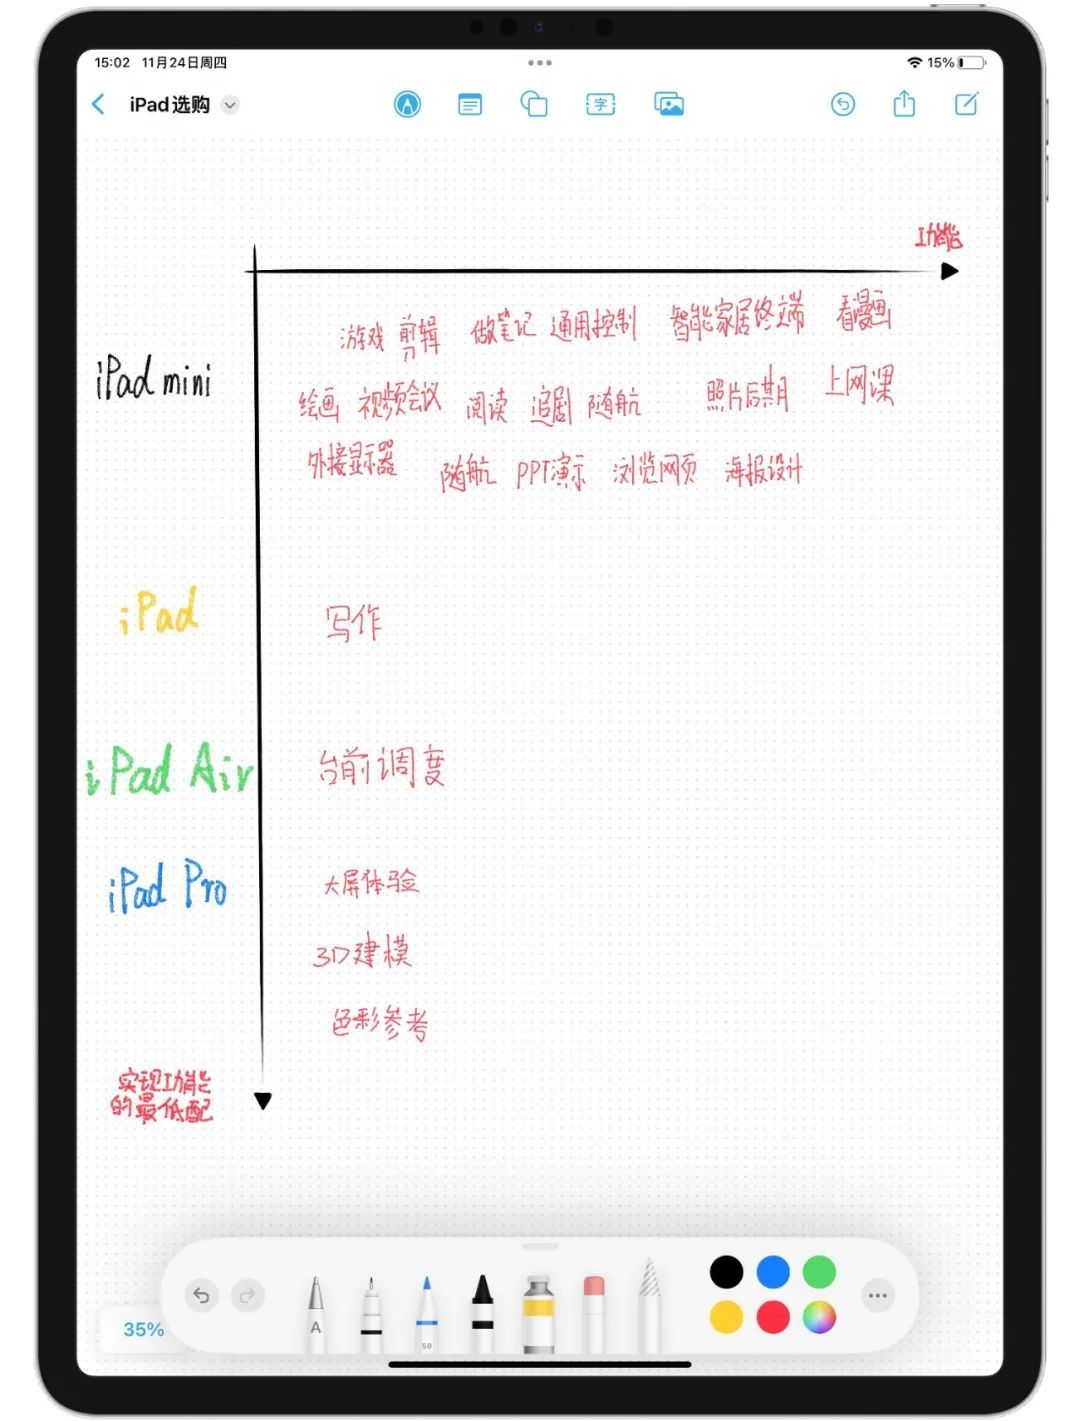 15:02 11月24日周四 15%
iPad选购
字
功能
游戏 剪辑 做笔记 通用控制 智能家居终端 看漫画
iPad mini
绘画 视频会议 阅读 追剧 随航 照片后期 上网课
外接显示器 随航 PPT演示 浏览网页 海报设计
iPad 写作
iPad Air 台前调度
iPad Pro 大屏体验
3D建模
色彩参考
实现功能
的最低配
A
50
35%